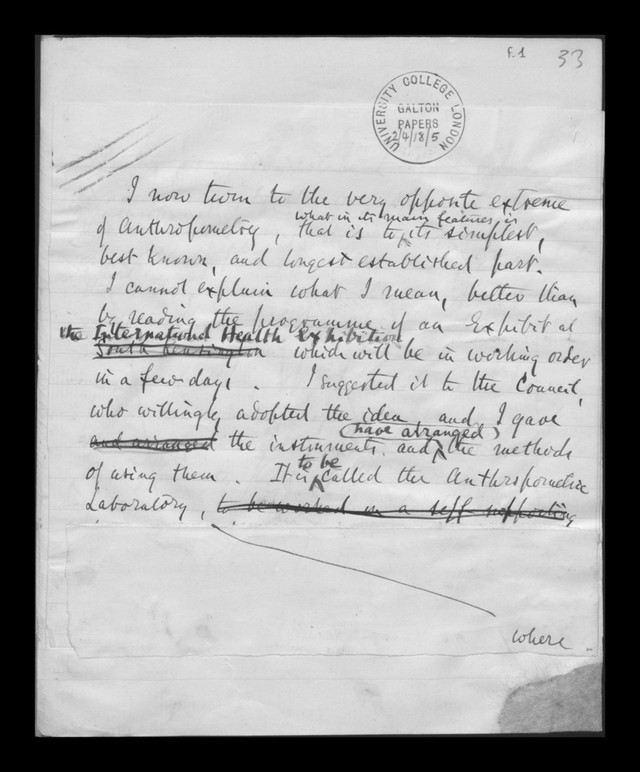 F.1 33
UNIVERSITY COLLEGE LONDON
GALTON
PAPERS
2/4/18/5
I now turn to the very opposite extreme
what in its main features is
of Anthropometry, that is to its simplest,
best known, and longest established part.
I cannot explain what I mean, better than
by reading the programme of an Exhibit at
the International Health Exhibition
South Kensington which will be in working order
in a few days. I suggested it to the Council,
who willingly adopted the idea and I gave
(have arranged)
and arranged the instruments and the methods
to be
of using them. It is called the Anthropometric
Laboratory, to be worked on a self supporting
where